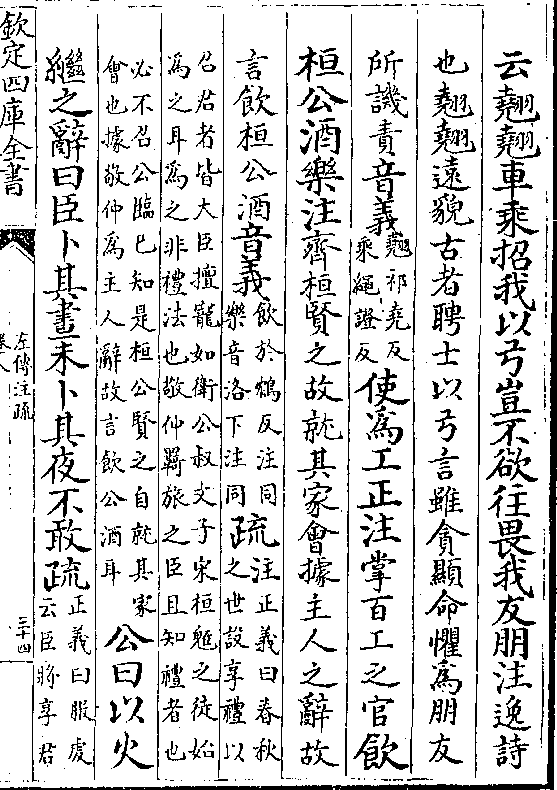 云翹翹車乘招我以弓豈不欲往畏我友朋注逸詩
也翹翹遠貌古者聘士以弓言雖貪顯命懼為朋友
所譏責音義翹祁堯反
乘繩證反使為工正注掌百工之官飲
桓公酒樂注齊桓賢之故就其家會據主人之辭故
言飲桓公酒音義飲於鴆反注同
樂音洛下注同疏注正義曰春秋
之世設享禮以
召君者皆大臣擅寵如衛公叔文子宋桓魋之徒始
為之耳為之非禮法也敬仲羇旅之臣且知禮者也
必不召公臨已知是桓公賢之自就其家
會也據敬仲為主人辭故言飲公酒耳公曰以火
繼之辭曰臣卜其晝未卜其夜不敢疏正義曰服虔
云臣將享君
欽定四庫全書
左傳注疏
卷八
三十四